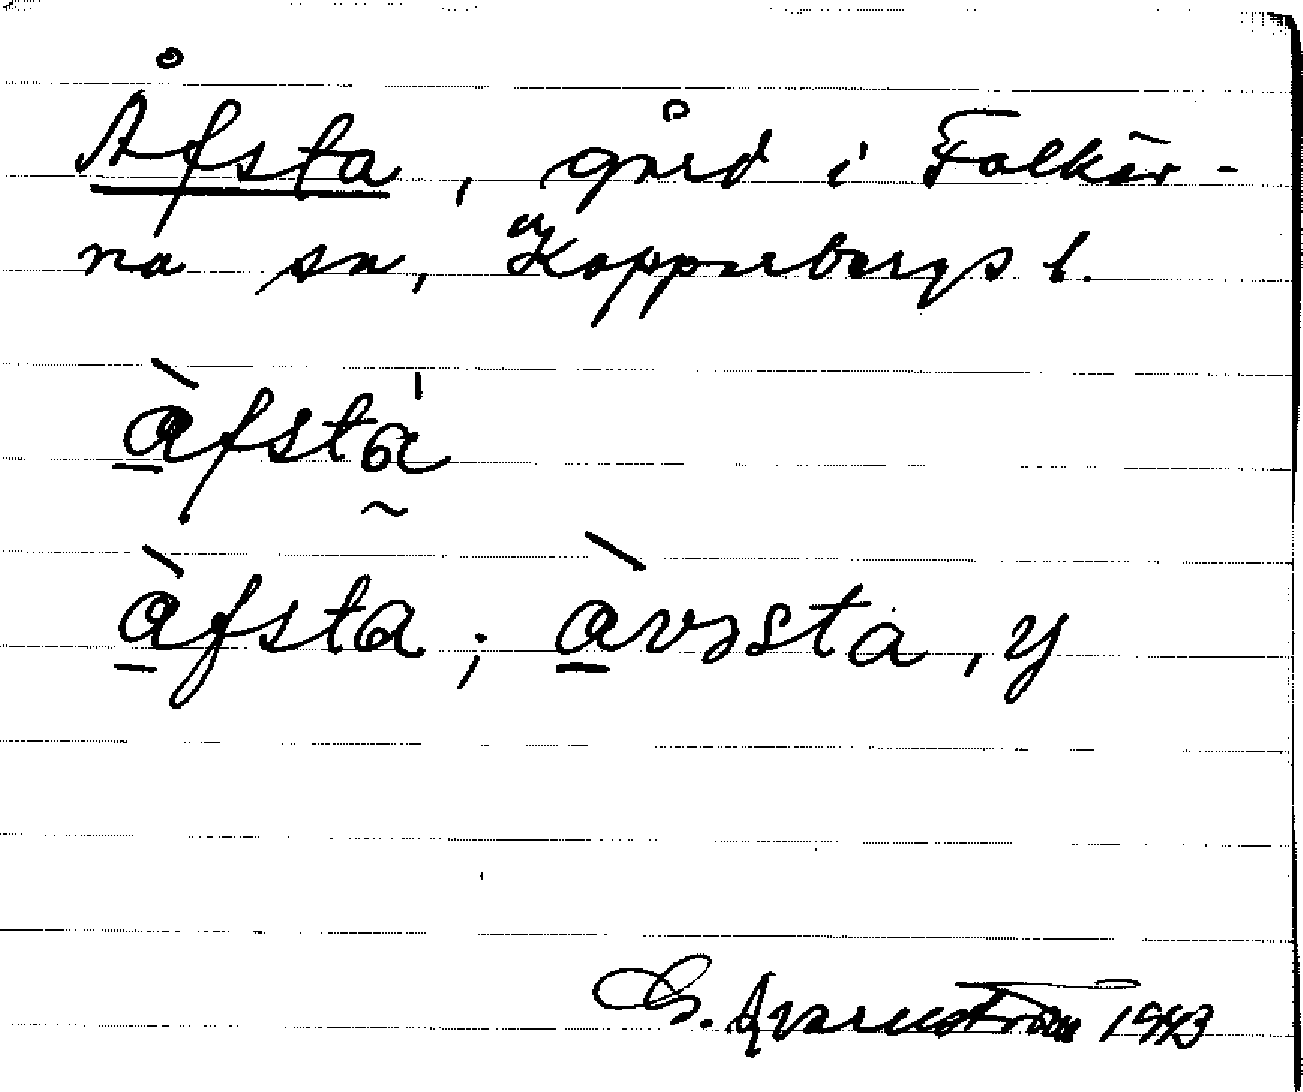 Åfsta, gård i Folkär-
na sn, Kopparbergs l.
àfstá
àfsta; àvssta, y
E. Qvarnström 1943